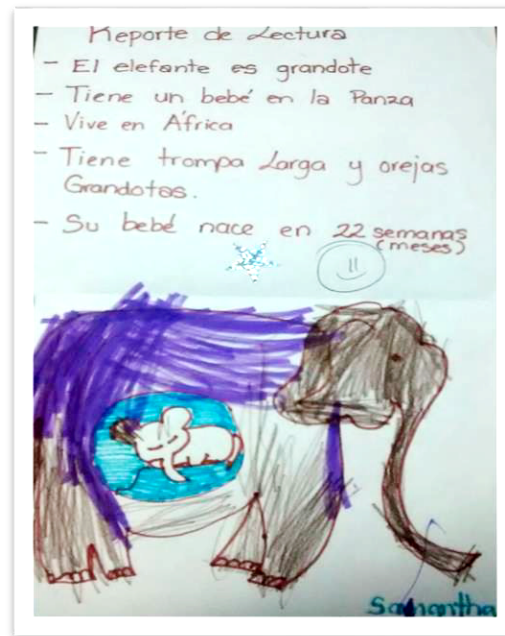 Reporte de Lectura
- El elefante es grandote
- Tiene un bebé en la Panza
- Vive en África
- Tiene trompa Larga y orejas
Grandotas.
- Su bebé nace en 22 semanas
(meses)
Samantha